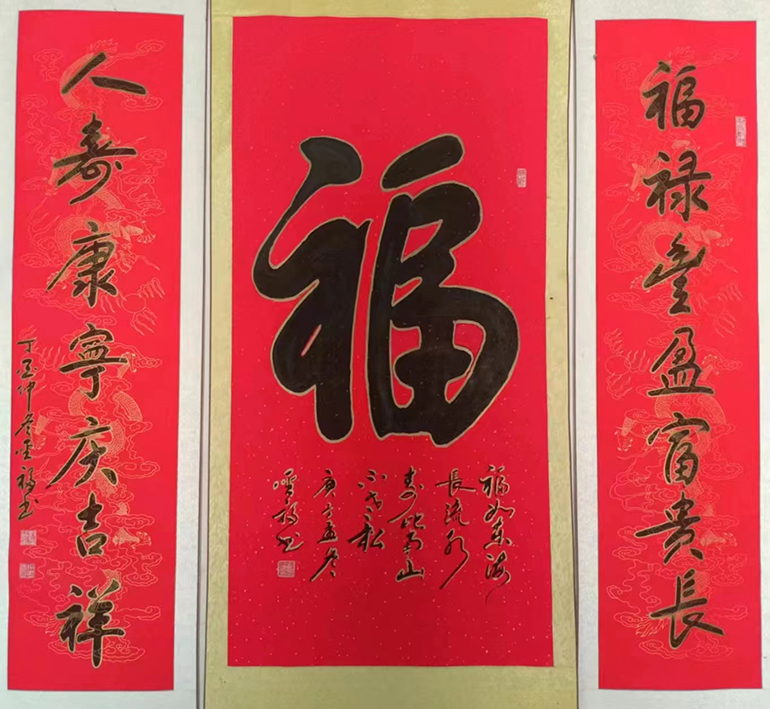 福禄豐盈富贵長
福
福如东海
長流水
寿比南山
不老松
庚子孟冬
雲福书
人寿康寧庆吉祥
丁酉仲冬雲福书